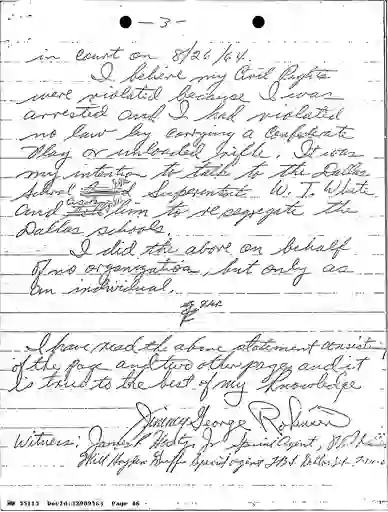 - 3 -
in court on 8/26/64.
I believe my Civil Rights
were violated because I was
arrested and I had violated
no law by carrying a Confederate
Flag or unloaded rifle. It was
my intention to talk to the Dallas
School Superentent W. T. White
and ask him to resegregate the
Dallas schools.
I did the above on behalf
of no organization, but only as
an individual.
I have read the above statement consisting
of this page and two other pages and it
is true to the best of my knowledge
Jimmy George Robinson
Witness: James P. Hosty, Jr. Special Agent, F.B.I.
Will Hayden Griffin Special Agent FBI Dallas
HW 55115 DocId:32989563 Page 46